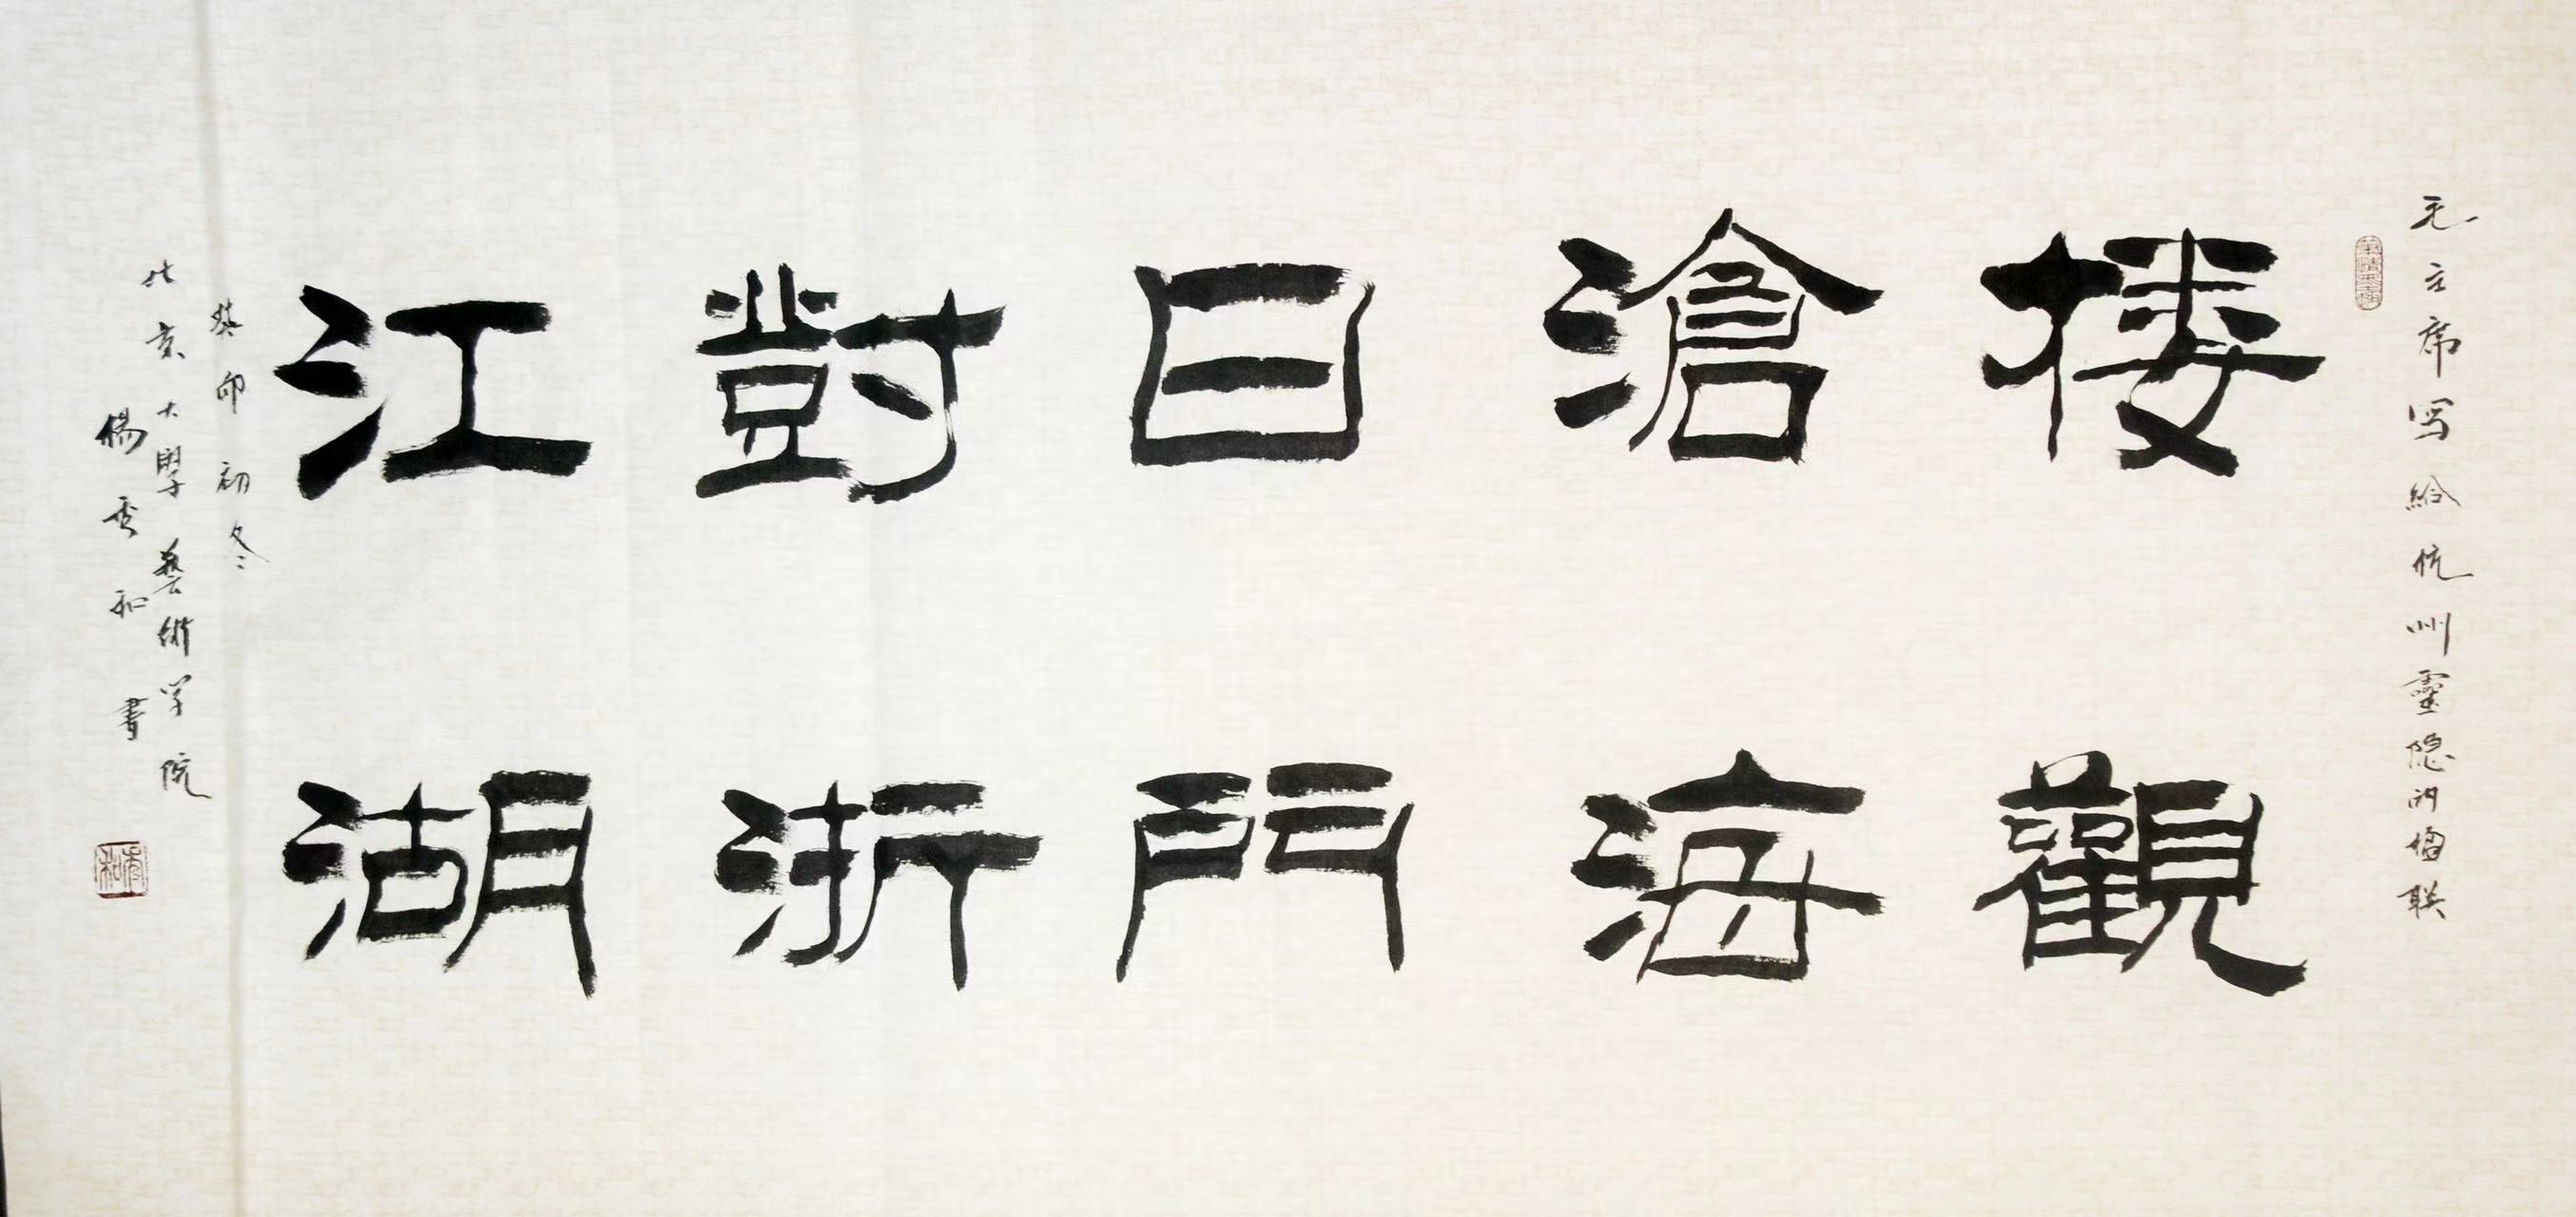 毛主席写给杭州靈隐的楹联
楼觀
滄海
日門
對浙
江湖
癸卯初冬
北京大學藝術学院
楊秀和書
秀和